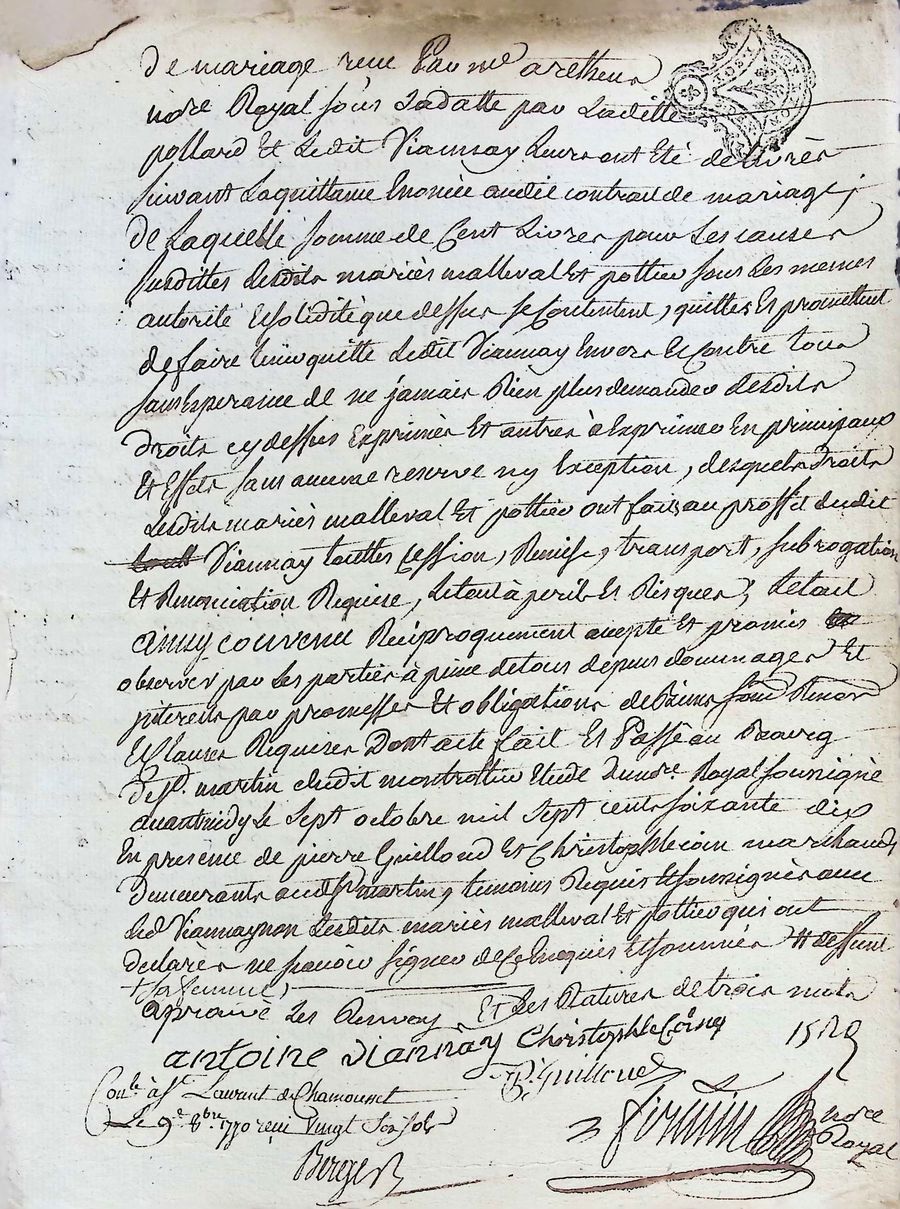 de mariage recu par me aretheur
nore Royal sous sa datte par Laditte
pollard Et Ledit Viannay Leurs ont Eté delivrés
suivant Laquittance Enoncée audit contrat de mariage ;
de Laquelle somme de Cent Livres pour Les causes
susdittes Lesdits mariés malleval Et pottier sous Les memes
autorité Et soliditè que dessus se Contentent, quittes Et promettent
de faire tenir quitte Ledit Viannay Envers Et Contre tous
sans Esperance de ne jamais Rien plus demander desdits
droits cy dessus Exprimés Et autres à Exprimer En principaux
Et Effets sans aucune reserve ny Exception, desquels Droits
Lesdits mariés malleval Et pottier ont fait au proffit dudit
Viannay touttes Cession, Remise, transport, subrogation
Et Renonciation Requise, Le tout à perils Et Risques ; Le tout
ainsy convenu Reciproquement accepté Et promis
observer par Les parties à peine de tous depens dommages Et
interets par promesses Et obligations de biens
Et Clauses Requises Dont acte fait Et Passé au Bourg
de St. martin dudit Etude du nore. Royal soussigné
avant midy Le Sept octobre mil Sept cents soixante dix
En presence de pierre Guilloud Et Christophle marchands
Demeurants audit St martin, temoins Requis Et soussignés avec
Led Viannay non Lesdits mariés malleval Et pottier qui ont
declarés ne sçavoir signer de Ce Enquis Et sommés
Et sa femme
aprouvé Les Renvoy Et Les Ratures de trois mots
antoine viannay Christophle
P. Guilloud
Conlé à St Laurent de Chamousset
Le 9e 8bre 1770 recu Vingt Six sols
nore
Royal
Berger